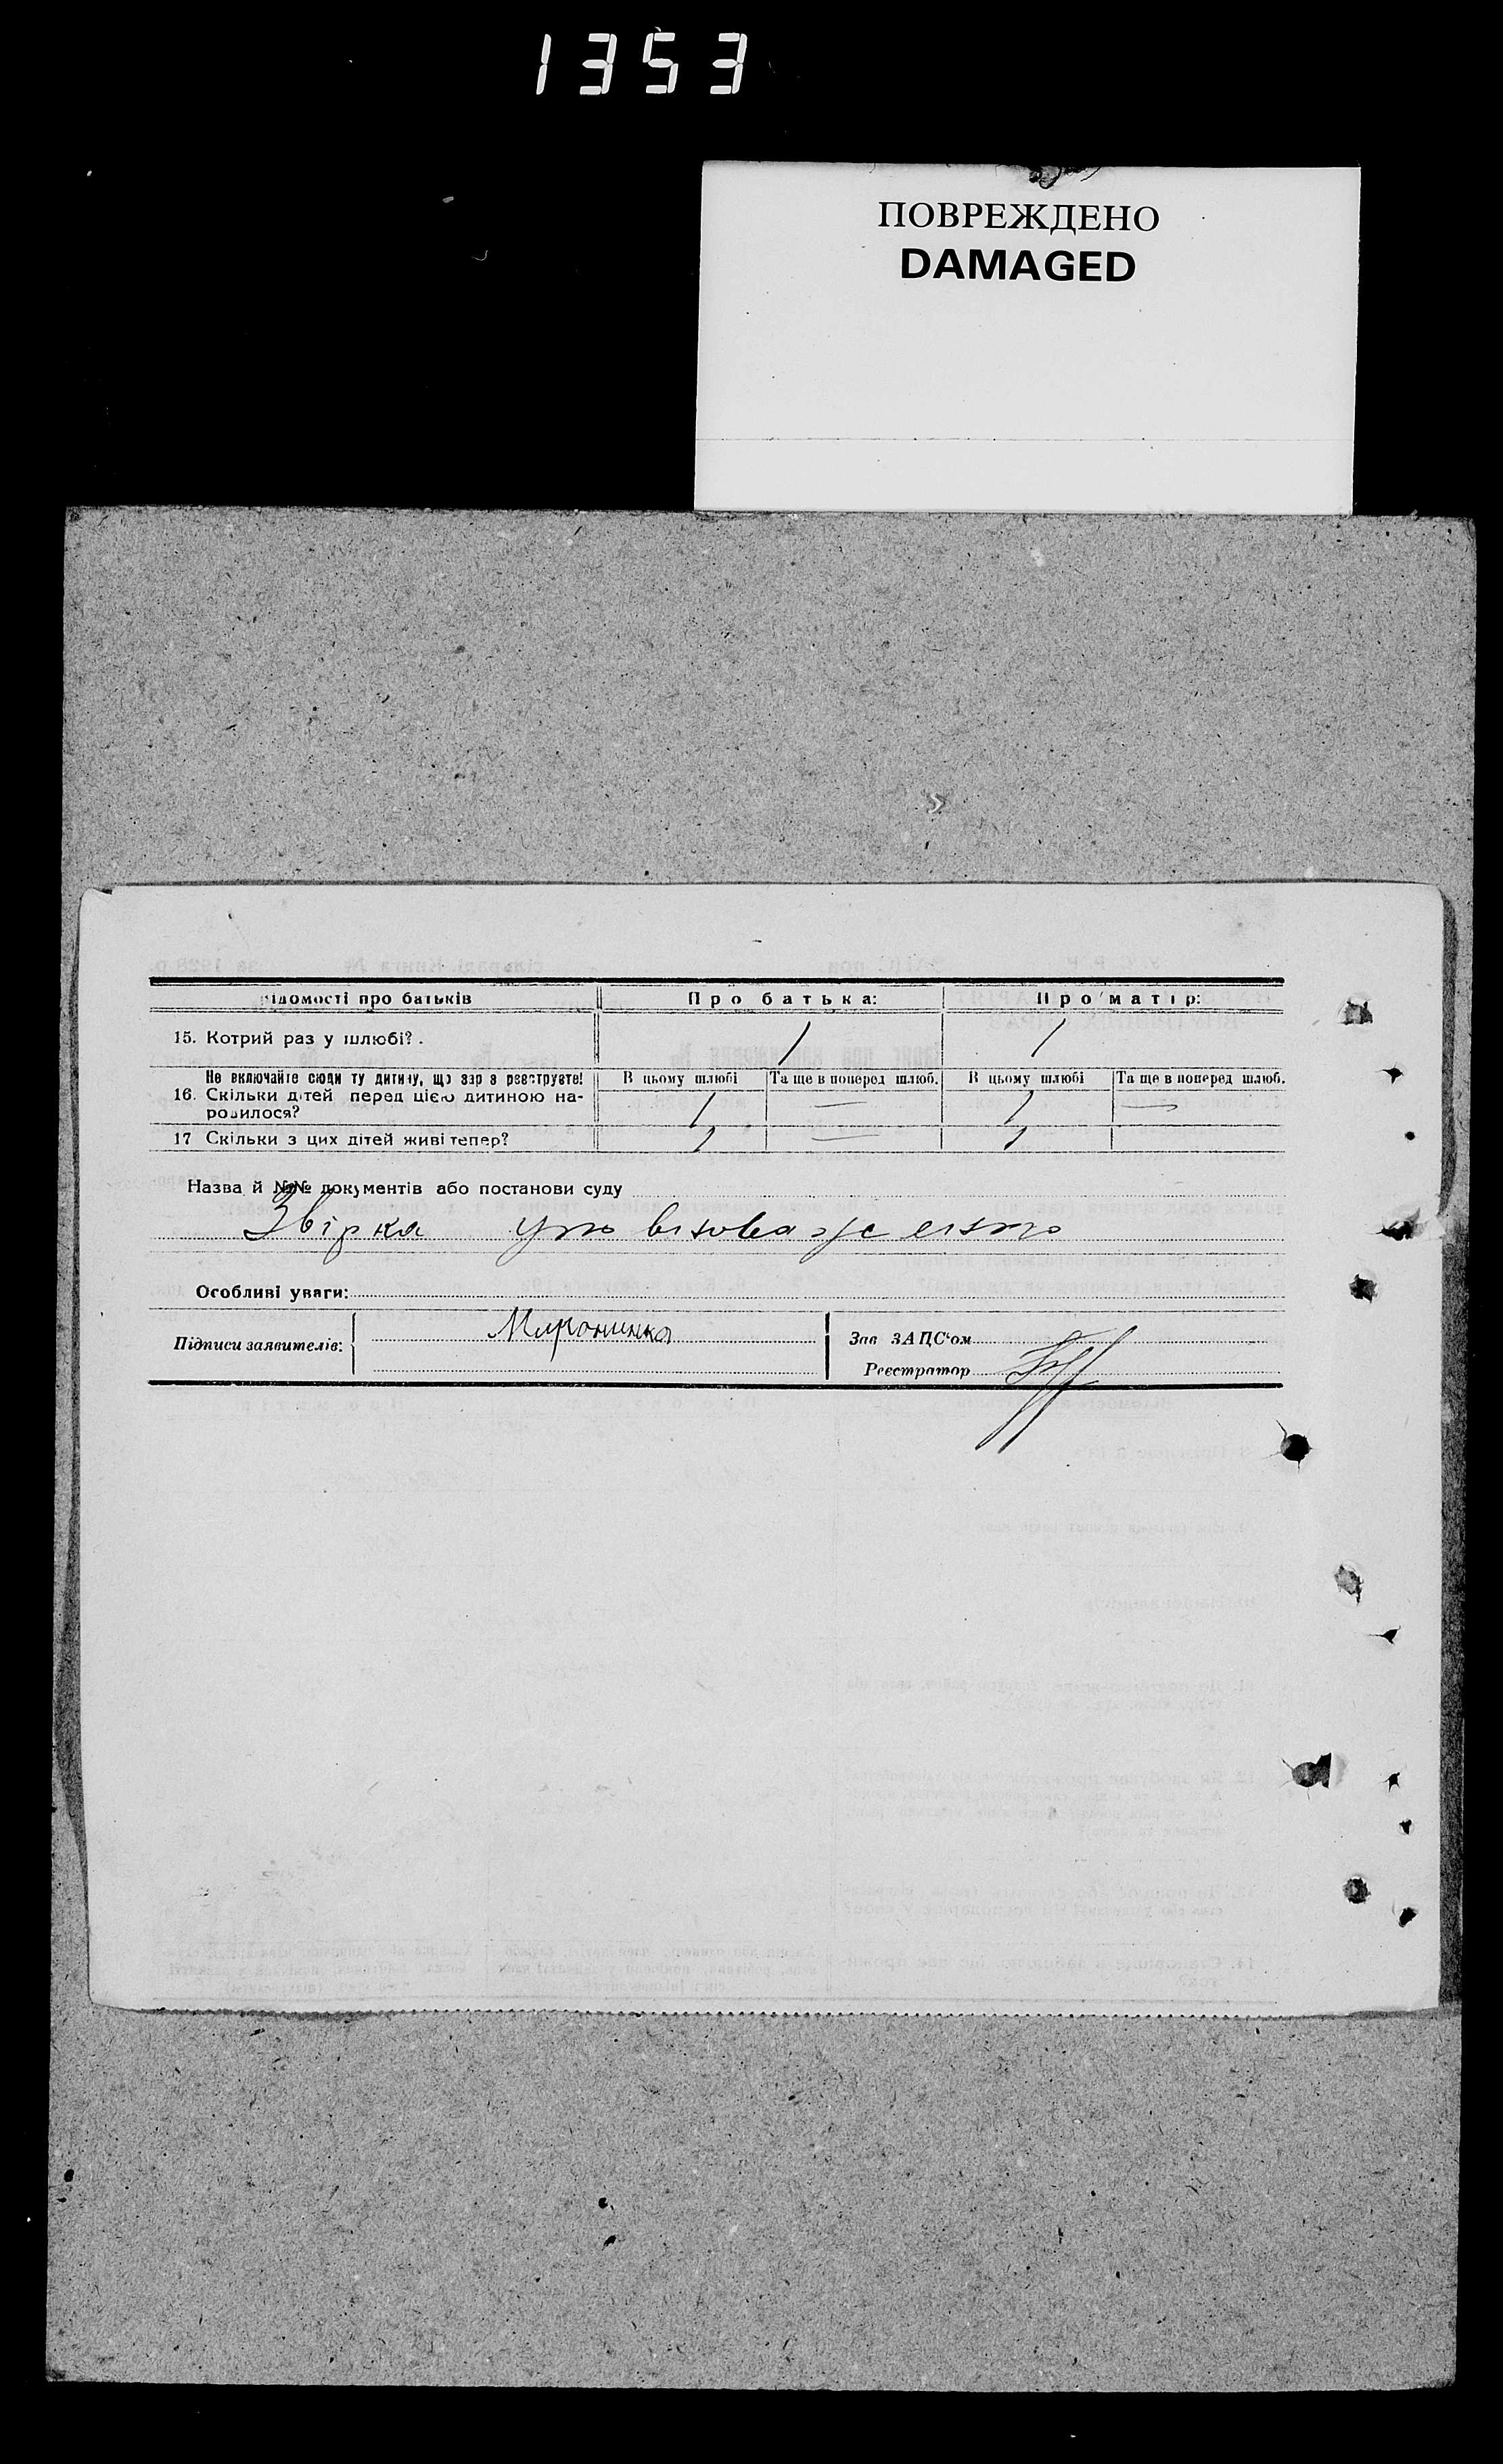 1353
ПОВРЕЖДЕНО
DAMAGED
ідомості про батьків Про батька: Про матір:
15. Котрий раз у шлюбі? . 1 1
Не включайте сюди ту дитину, що зараз реєструєте! В цьому шлюбі Та ще в поперед шлюб. В цьому шлюбі Та ще в поперед шлюб.
16. Скільки дітей перед цією дитиною на- 1 — 1 —
родилося?
17 Скільки з цих дітей живі тепер? 1 — 1
Назва й №№ документів або постанови суду
Звірка
Особливі уваги:
Підписи заявителів: Зав ЗАЦС'ом
Реєстратор